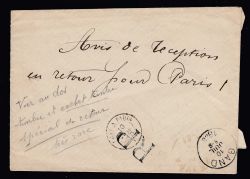 Avis de réception
en retour pour Paris !
Vue au dos
timbre et cachet
spécial de retour
très rare
GAND